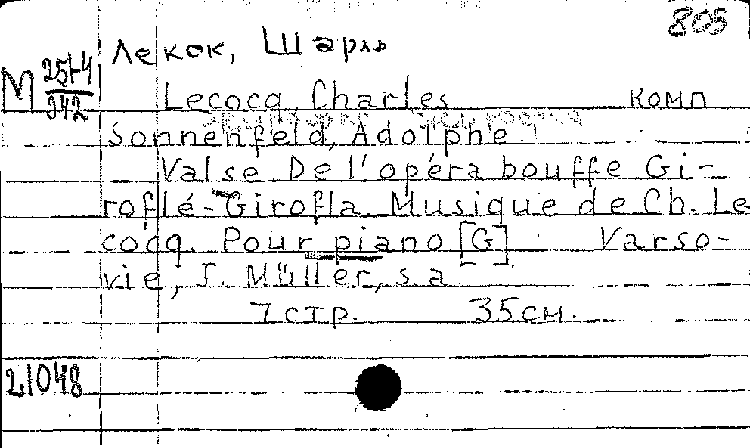 805
Лекок, Шарль
М 251-4
342
Lecocq, Charles комп
Sonnenfeld, Adolphe
Valse De l'opéra bouffe Gi-
roflé-Girofla. Musique de Ch. Le
cocq. Pour piano [G] Varso-
vie, J. Müller, s.a
7 стр. 35 см.
21048